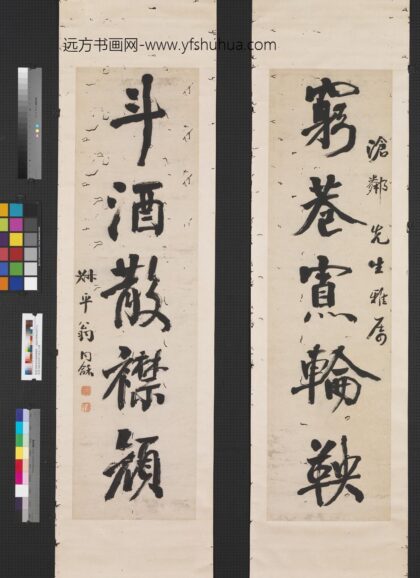 远方书画网-www.yfshuhua.com
滄鄰先生雅属
窮巷寡輪鞅
斗酒散襟顏
叔平翁同龢